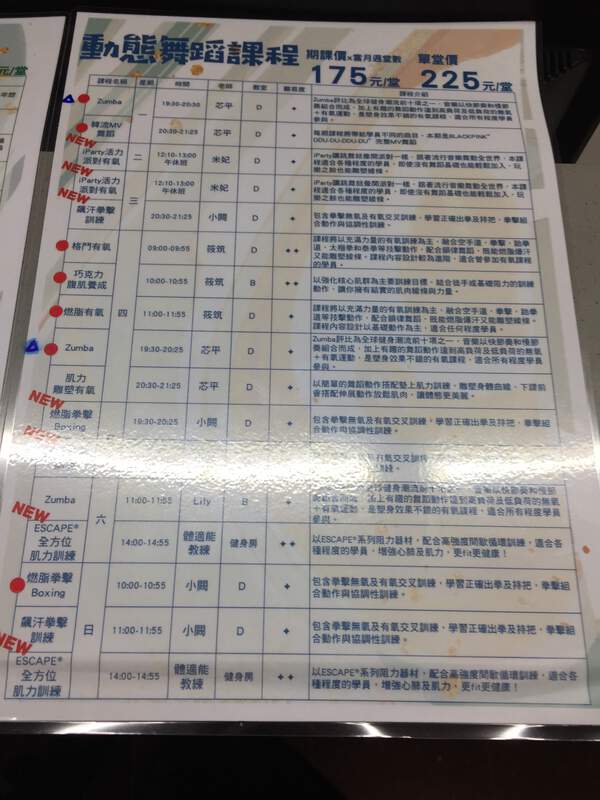 元/堂
動態舞蹈課程 期課價x當月週堂數 單堂價
175元/堂 225元/堂
課程名稱 星期 時間 老師 教室 難易度 課程介紹
Zumba 一 19:30-20:30 芯平 D ✦ Zumba評比為全球健身潮流前十項之一，音樂以快節奏和慢節奏組合而成，加上有趣的舞蹈動作達到高負荷及低負荷的無氧+有氧運動，是塑身效果不錯的有氧課程，適合所有程度學員
韓流MV舞蹈 20:30-21:25 芯平 D ✦ 每期課程將帶給學員不同的曲目，本期是BLACKPINK“DDU-DU-DDU-DU” 完整MV舞蹈
NEW
iParty活力派對有氧 二 12:10-13:00 午休班 米妃 D ✦ iParty讓跳舞就像開派對一樣，跟著流行音樂舞動全世界，本課程適合各種程度的學員，即使沒有舞蹈基礎也能輕鬆加入，玩樂之餘也能雕塑線條。
NEW
iParty活力派對有氧 三 12:10-13:00 午休班 米妃 D ✦ iParty讓跳舞就像開派對一樣，跟著流行音樂舞動全世界，本課程適合各種程度的學員，即使沒有舞蹈基礎也能輕鬆加入，玩樂之餘也能雕塑線條。
NEW
飆汗拳擊訓練 20:30-21:25 小闕 D ✦ 包含拳擊無氧及有氧交叉訓練，學習正確出拳及持把，拳擊組合動作與協調性訓練。
格鬥有氧 四 09:00-09:55 筱筑 D ✦✦ 課程將以充滿力量的有氧訓練為主，融合空手道、拳擊、跆拳道、太極拳和泰拳等技擊動作，配合韻律舞蹈，既能燃脂爆汗又能雕塑線條。課程內容設計較為進階，適合曾參加有氧課程的學員。
巧克力腹肌養成 10:00-10:55 筱筑 B ✦✦ 以強化核心肌群為主要訓練目標，結合徒手或基礎阻力的訓練動作，讓你擁有結實的肌肉線條與力量。
燃脂有氧 11:00-11:55 筱筑 D ✦ 課程將以充滿力量的有氧訓練為主，融合空手道、拳擊、跆拳道等技擊動作，配合韻律舞蹈，既能燃脂爆汗又能雕塑線條。課程內容設計以基礎動作為主，適合任何程度學員。
Zumba 19:30-20:25 芯平 D ✦ Zumba評比為全球健身潮流前十項之一，音樂以快節奏和慢節奏組合而成，加上有趣的舞蹈動作達到高負荷及低負荷的無氧+有氧運動，是塑身效果不錯的有氧課程，適合所有程度學員參與。
肌力雕塑有氧 20:30-21:25 芯平 D ✦ 以簡單的舞蹈動作搭配墊上肌力訓練，雕塑身體曲線，下課前會搭配伸展動作放鬆肌肉，讓體態更美麗。
NEW
燃脂拳擊Boxing 19:30-20:25 小闕 D ✦ 包含拳擊無氧及有氧交叉訓練，學習正確出拳及持把，拳擊組合動作與協調性訓練。
NEW
Zumba 六 11:00-11:55 Lily B ✦ 健身潮流前十項之一，音樂以快節奏和慢節奏組合而成，加上有趣的舞蹈動作達到高負荷及低負荷的無氧+有氧運動，是塑身效果不錯的有氧課程，適合所有程度學員參與。
NEW
ESCAPE®全方位肌力訓練 14:00-14:55 體適能教練 健身房 ✦✦ 以ESCAPE®系列阻力器材，配合高強度間歇循環訓練，適合各種程度的學員，增強心肺及肌力，更fit更健康！
燃脂拳擊Boxing 日 10:00-10:55 小闕 D ✦ 包含拳擊無氧及有氧交叉訓練，學習正確出拳及持把，拳擊組合動作與協調性訓練。
飆汗拳擊訓練 11:00-11:55 小闕 D ✦ 包含拳擊無氧及有氧交叉訓練，學習正確出拳及持把，拳擊組合動作與協調性訓練。
NEW
ESCAPE®全方位肌力訓練 14:00-14:55 體適能教練 健身房 ✦✦ 以ESCAPE®系列阻力器材，配合高強度間歇循環訓練，適合各種程度的學員，增強心肺及肌力，更fit更健康！